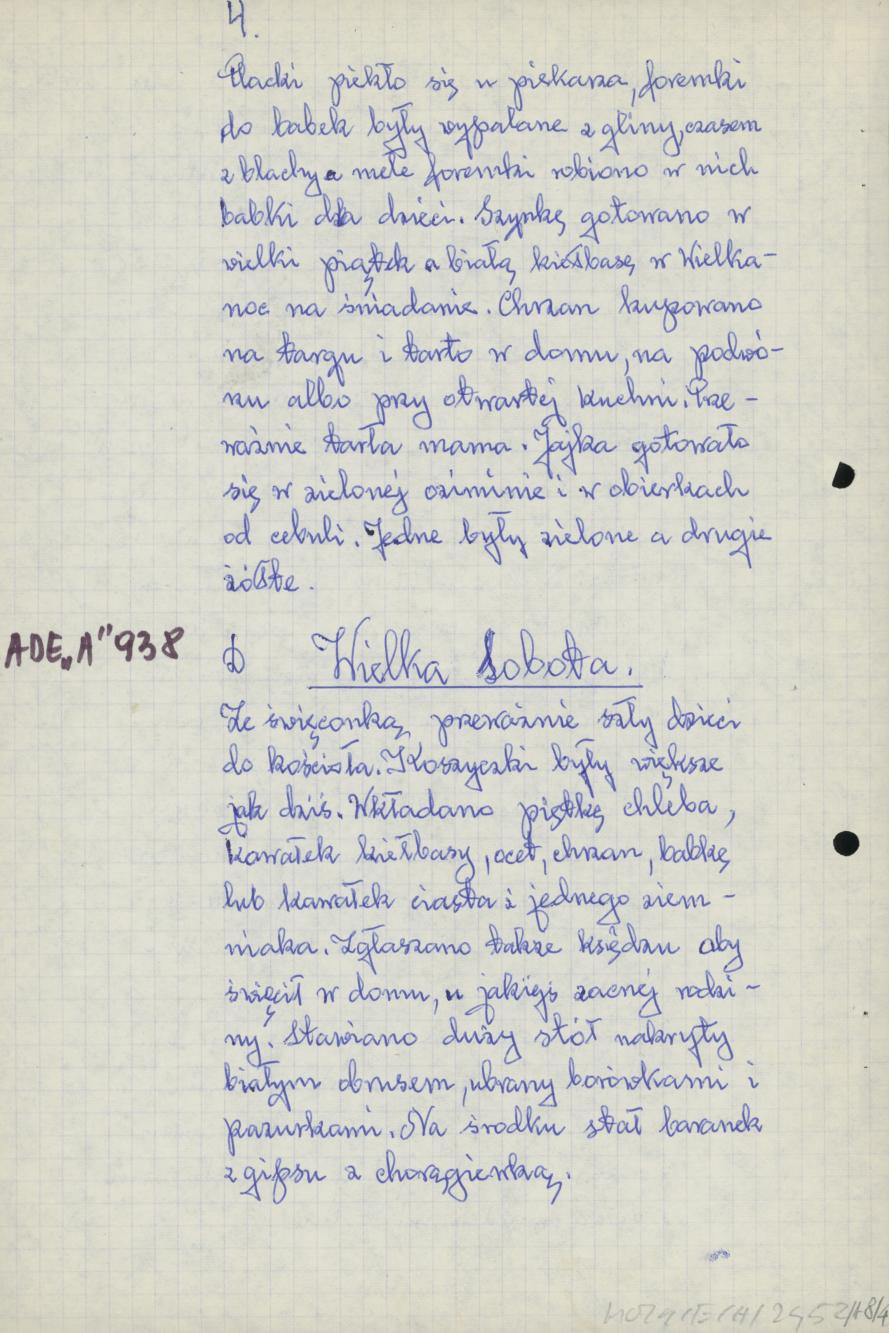 4.
Placki piekło się u piekarza, foremki
do babek były wypalane z gliny, czasem
z blachy a małe foremki robiono w nich
babki dla dzieci. Szynkę gotowano w
wielki piątek a białą kiełbasę w Wielka-
noc na śniadanie. Chrzan kupowano
na targu i tarło w domu, na podwó-
rzu albo przy otwartej kuchni. Prze-
ważnie tarła mama. Jajka gotowało
się w zielonej oziminie i w obierkach
od cebuli. Jedne były zielone a drugie
żółte.
ADE „A" 938
D Wielka Sobota.
Ze święconką przeważnie szły dzieci
do kościoła. Koszyczki były większe
jak dziś. Wkładano piętkę chleba,
kawałek kiełbasy, ocet, chrzan, babkę
lub kawałek ciasta i jednego ziem-
niaka. Zgłaszano także księdzu aby
święcił w domu, u jakiejś zacnej rodzi-
ny. Stawiano duży stół nakryty
białym obrusem, ubrany borówkami i
pazurkami. Na środku stał baranek
z gipsu z chorągiewką.